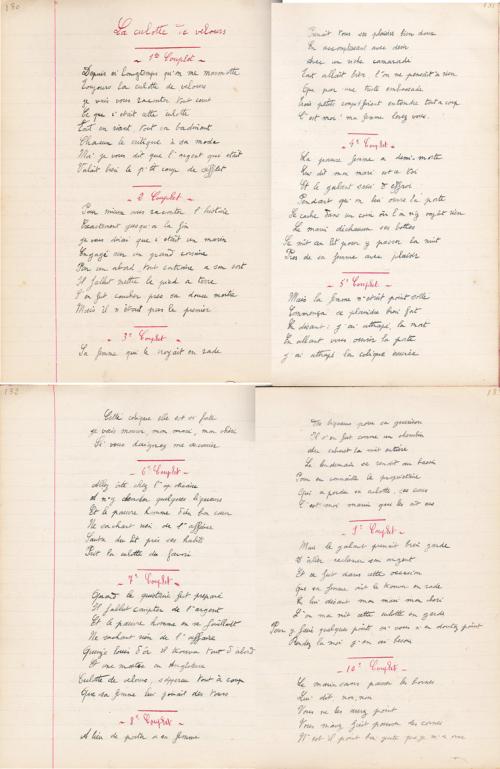 130
La culotte de velours
1er Couplet
Depuis si longtemps qu'on me marmotte
Toujours la culotte de velours
je vais vous raconter tout court
Ce que c'était cette culotte
Tout en riant, tout en badinant
Chacun la critique à sa mode
Moi je vous dit que l'argent que était
Valait bien le p'tit coup de sifflet
2 Couplet
Pour mieux vous raconter l'histoire
Exactement jusqu'à la fin
je vous dirai que c'était un marin
Engagé sur un grand corsaire
Par un abord tout contraire a son sort
Il fallut mettre le pied a terre
S'en fut coucher près sa douce moitié
Mais il n'était pas le premier
3e Couplet
Sa femme qui le croyait en rade
131
Prenait tous ses plaisirs bien doux
En accomplissant avec désir
Avec un riche camarade
Tout allait bien l'on ne pensait à rien
Que par une triste embassade
Trois petits coups firent entendre tout a coup
C'est moi ma femme levez vous
4e Couplet
La jeune femme a demi-morte
Lui dit mon mari est a toi
Et le galant saisi d'effroi
Pendant qu'on lui ouvre la porte
Se cache dans un coin où l'on n'y voyait rien
Le mari déchaussa ses bottes
Se mit au lit pour y passer la nuit
Près de sa femme avec plaisir
5e Couplet
Mais la femme n'était point sotte
Commença ce plaindre bien fort
En disant : j'ai attrapé la mort
En allant vous ouvrir la porte
j'ai attrapé la colique
132
Cette colique elle est si forte
je vais mourir, mon mari, mon chéri
Si vous daignez me secourir
6e Couplet
Allez vite chez l'apothicaire
Et le pauvre homme d'un bon cœur
Ne sachant rien de l'affaire
Sauta du lit près ses habits
Prit la culotte du favori
7e Couplet
Quand la questrie fut préparé
Il fallut compter de l'argent
Et le pauvre homme en se fouillant
Ne sachant rien de l'affaire
Quinze louis d'or il trouva tout d'abord
Et une montre en Angleterre
Culotte de velours, s'aperçu tout à coup
Que sa femme lui jouait des tours
8e Couplet
A lieu de porter a sa femme
13
Des liqueurs pour sa guérison
Il s'en fut comme un
Le lendemain se rendit au bassin
Pour en connaitre le propriétaire
Qui a perdu sa culotte, ses sous
C'est moi marin que les ait eus
9e Couplet
Mais le galant prenait bien garde
D'aller réclamer son argent
Et ce fut dans cette occasion
Que sa femme vint le trouver en rade
En lui disant mon mari mon chéri
L'on m'a mit cette culotte en garde
Pour y faire quelques point, si vous n'en doutez point
Rendez la moi j'en ai besoin
10e Couplet
Le marin sans passer les bornes
Lui dit non, non
Vous ne les aurez point
Vous m'avez fait porter des cornes